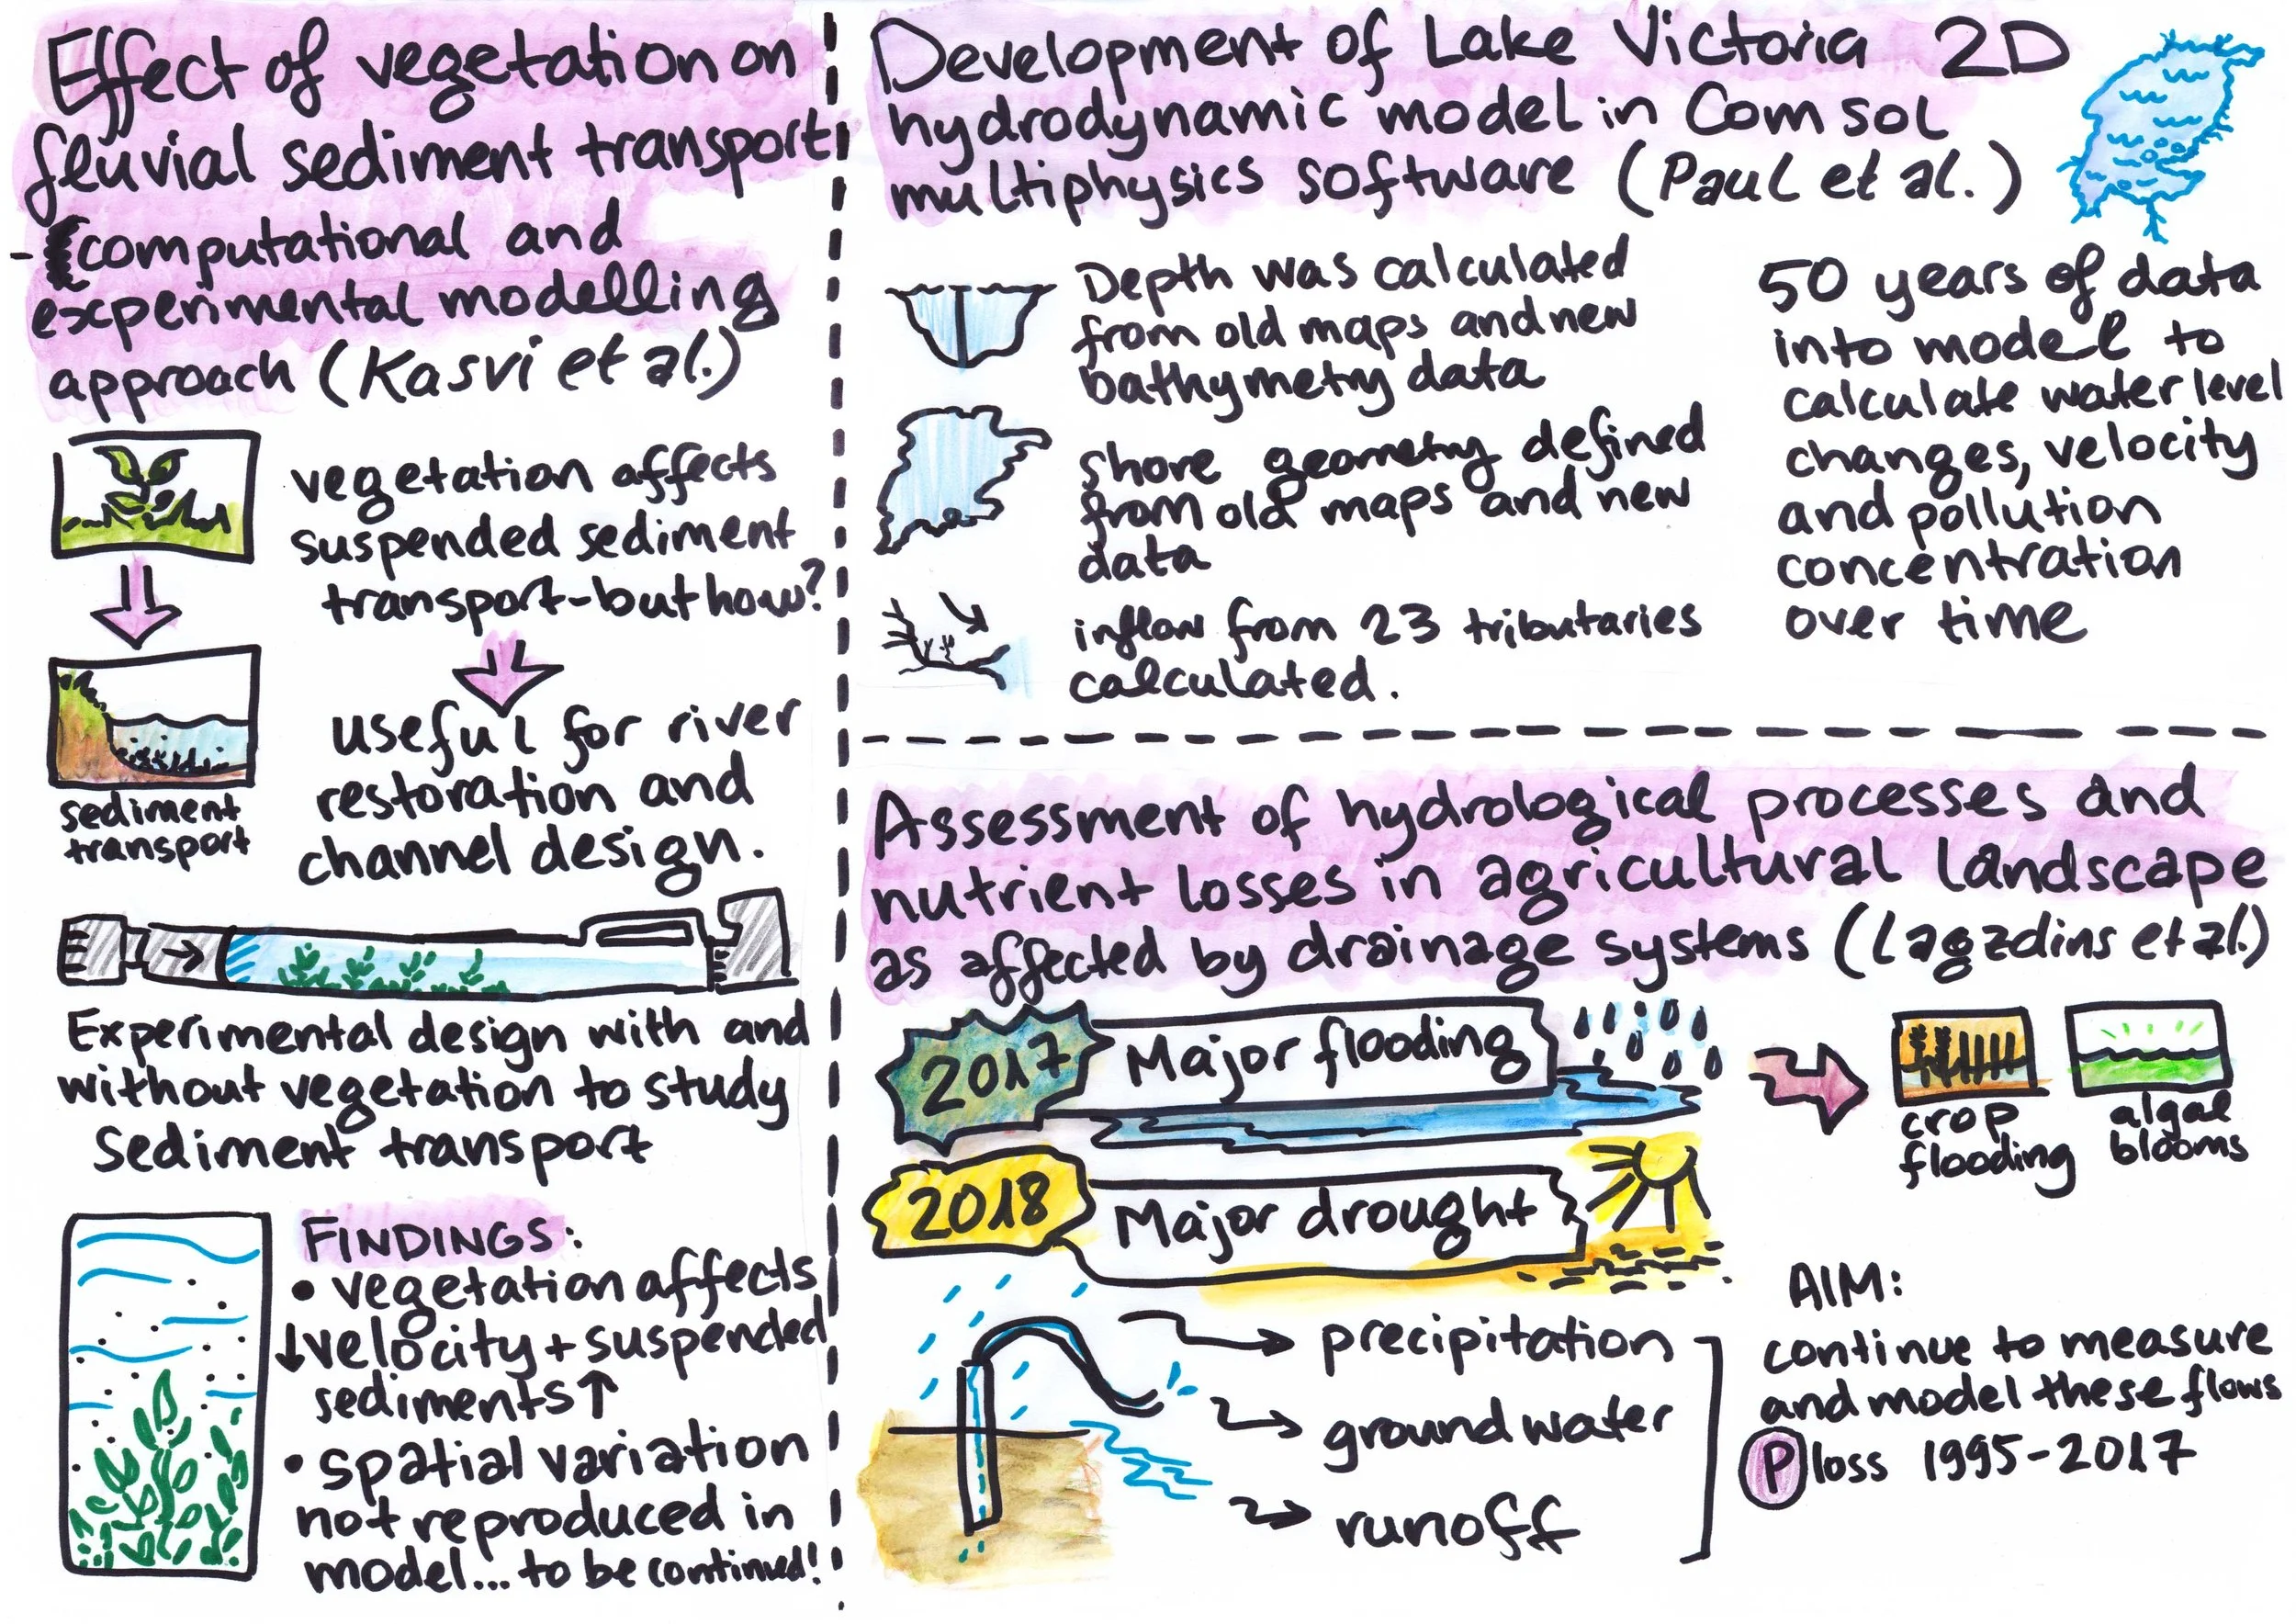 Effect of vegetation on
fluvial sediment transport
- computational and
experimental modelling
approach (Kasvi et al.)
vegetation affects
suspended sediment
transport-but how?
sediment
transport
useful for river
restoration and
channel design.
Experimental design with and
without vegetation to study
Sediment transport
FINDINGS:
• vegetation affects
↓velocity + suspended
sediments↑
• spatial variation
not reproduced in
model... to be continued!
Development of Lake Victoria 2D
hydrodynamic model in Comsol
multiphysics software (Paul et al.)
Depth was calculated
from old maps and new
bathymetry data
shore geometry defined
from old maps and new
data
inflow from 23 tributaries
calculated.
50 years of data
into model to
calculate water level
changes, velocity
and pollution
concentration
over time
Assessment of hydrological processes and
nutrient losses in agricultural landscape
as affected by drainage systems (Lagzdins et al.)
2017 Major flooding
crop
flooding
algae
blooms
2018 Major drought
precipitation
ground water
runoff
AIM:
continue to measure
and model these flows
P loss 1995-2017